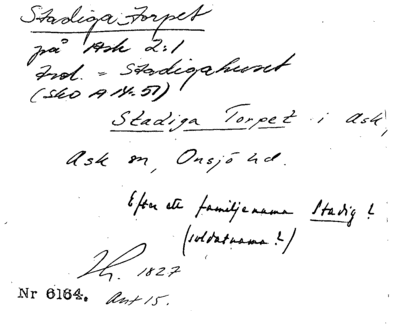 Stadiga Torpet
på Ask 2:1
Ind. = Stadigahuset
(SkO A 14:51)
Stadiga Torpet i Ask,
Ask sn, Onsjö hd.
Efter ett familjenamn Stadig?
(soldatnamn?)
1827
Nr 6164. Ant 15.